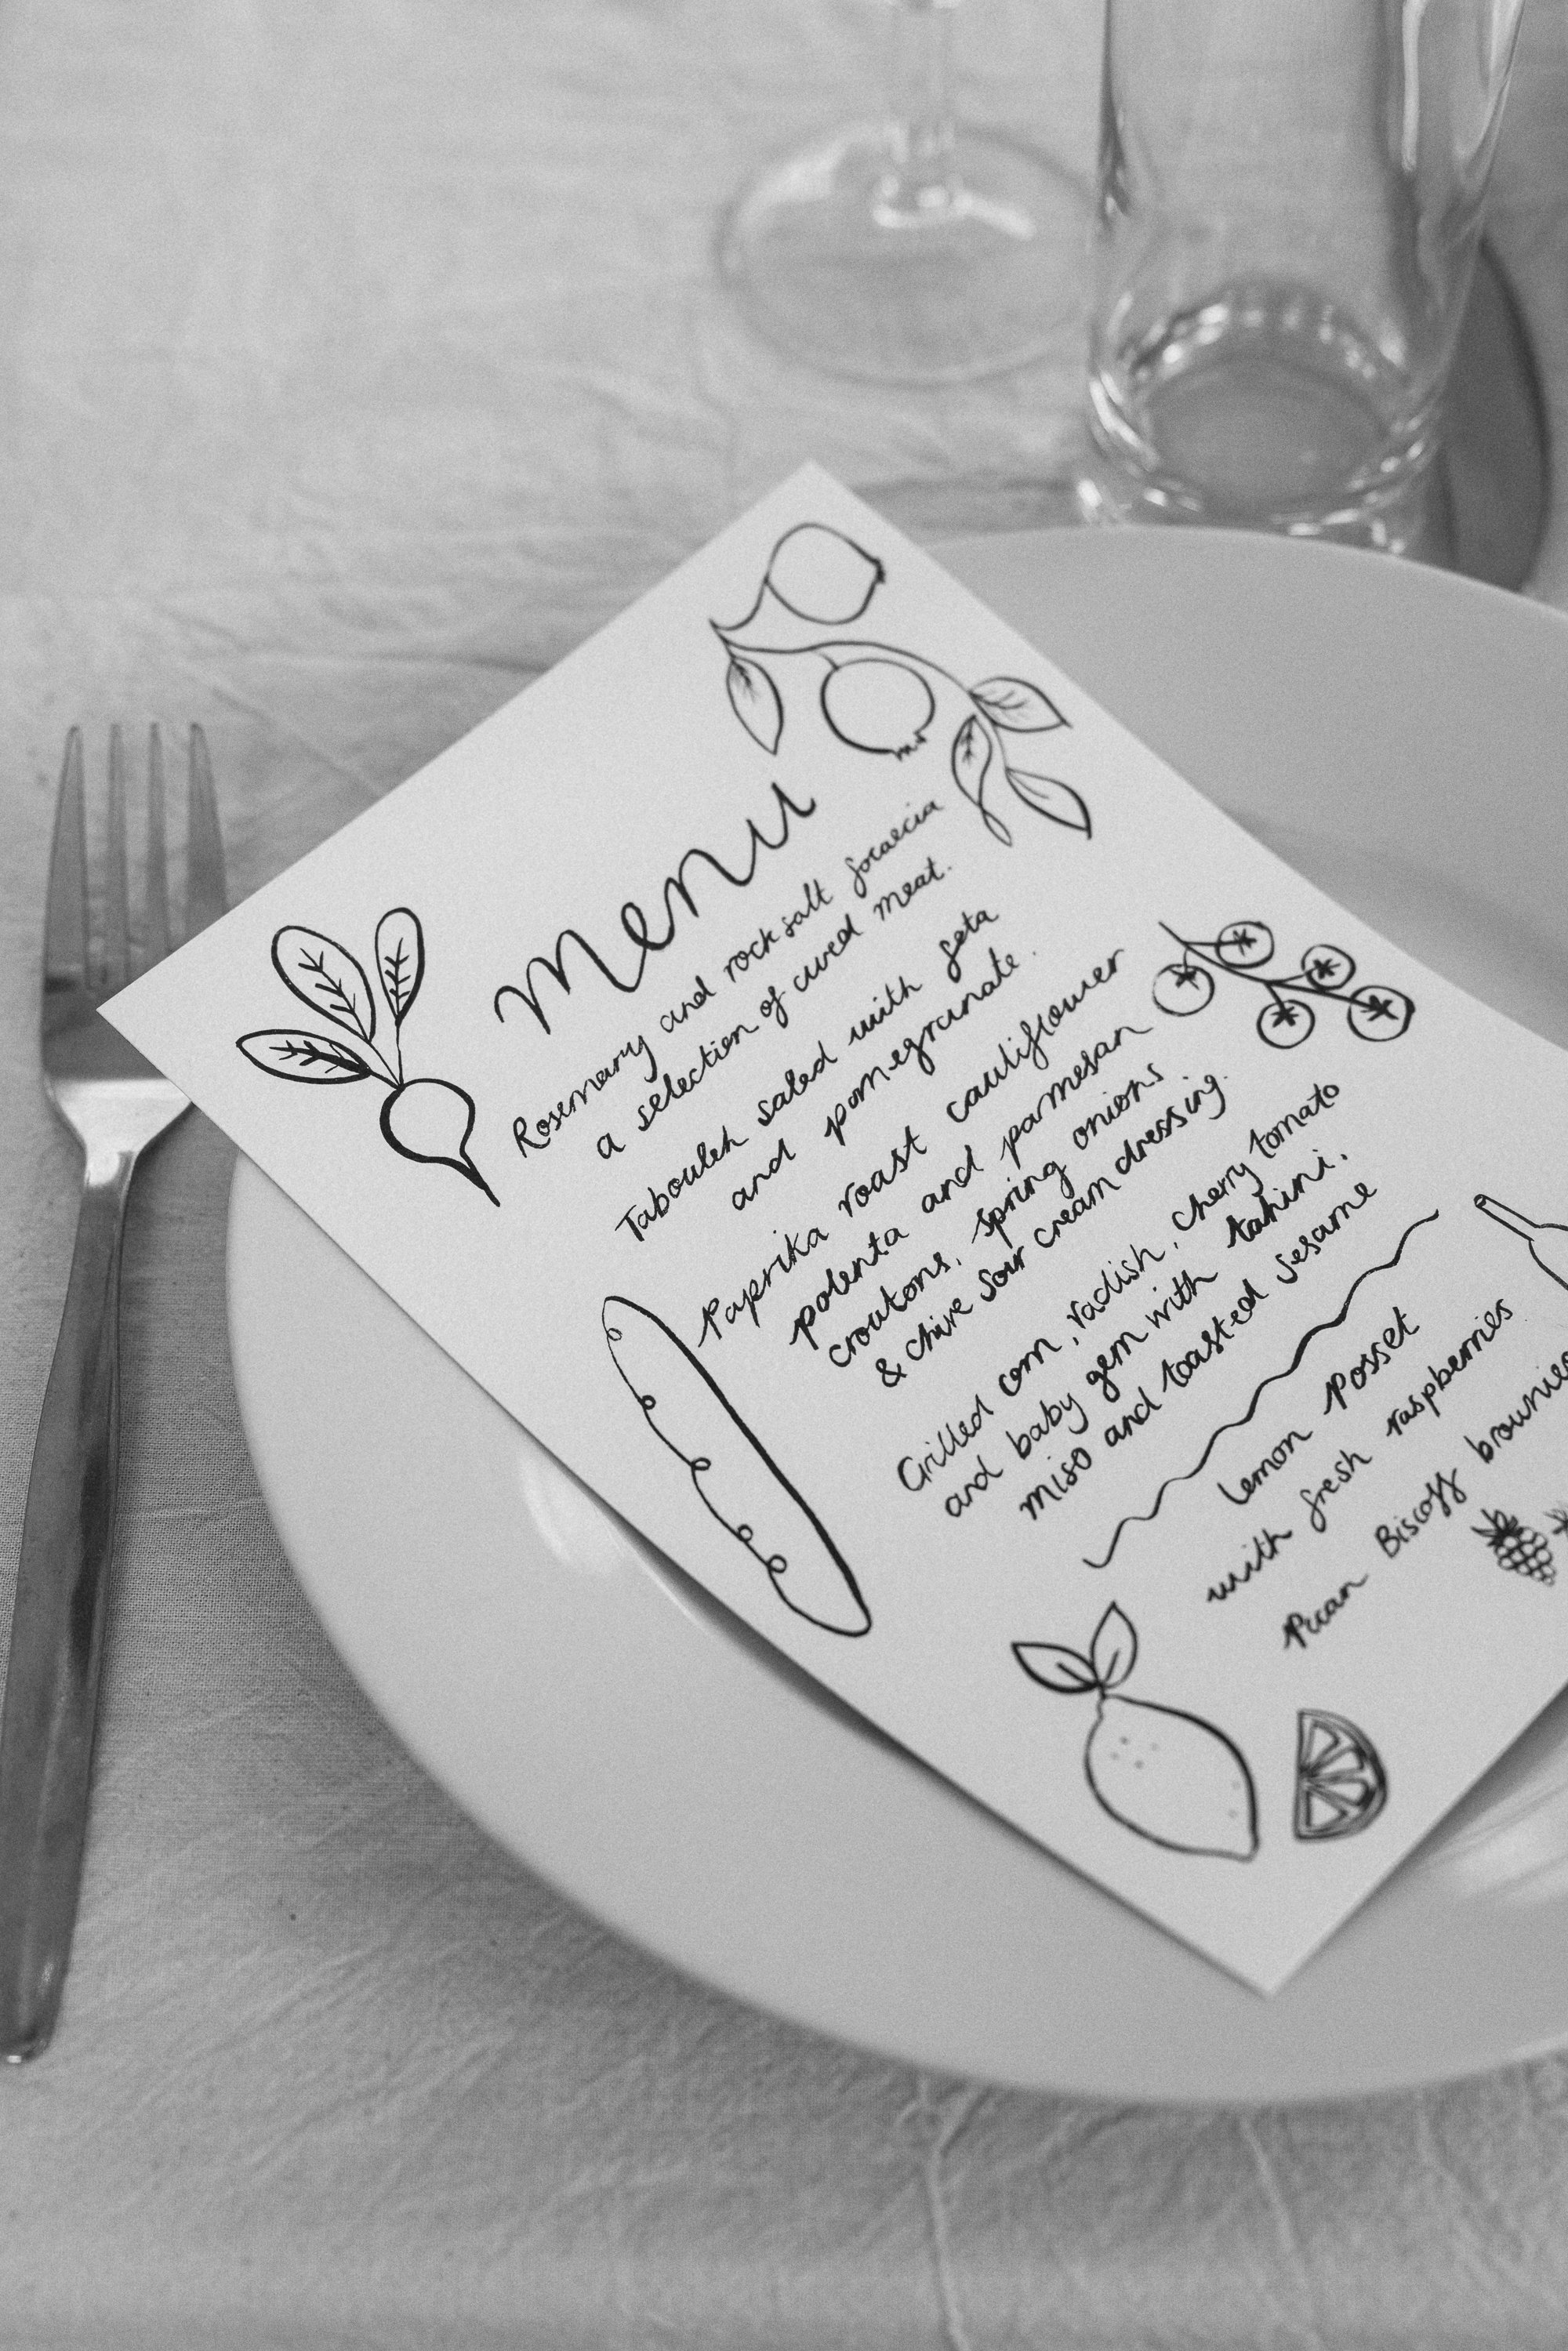 Menu
Rosemary and rock salt focaccia
a selection of cured meat.
Tabouleh salad with feta
and pomegranate.
Paprika roast cauliflower
polenta and parmesan
croutons, spring onions
& chive sour cream dressing.
Grilled corn, radish, cherry tomato
and baby gem with tahini,
miso and toasted sesame
Lemon Posset
with fresh raspberries
Pecan Biscoff brownies